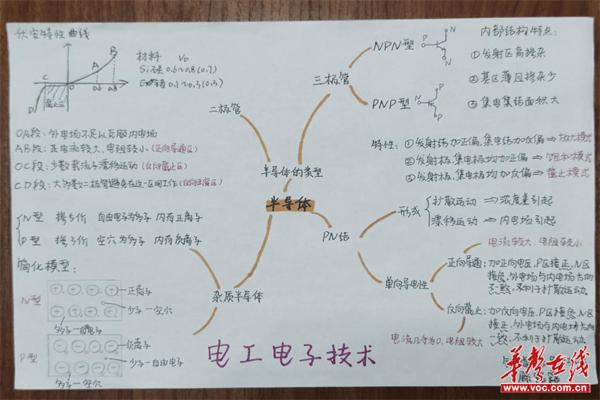 伏安特性曲线
材料 V₀
二极管
OA段：外电场不足以克服内电场
AB段：正电流较大、电阻较小（正向导通区）
OC段：少数载流子漂移运动（反向截止区）
N型 掺5价 自由电子为多子 内有正离子
P型 掺3价 空穴为多子 内有负离子
简化模型：
N型
正离子
少子—空穴
多子—自由电子
P型
负离子
少子—自由电子
多子—空穴
杂质半导体
半导体的类型
半导体
三极管
NPN型
PNP型
N
P
N
P
N
P
内部结构特点：
①发射区高掺杂
②基区薄且掺杂少
③集电集结面积大
特性：①发射结加正偏，集电结加反偏⇒放大模式
②发射极、集电极均加正偏⇒饱和模式
③发射极、集电极均加反偏⇒截止模式
PN结
形成
扩散运动⇒浓度差引起
漂移运动⇒内电场引起
单向导电性
电流较大，电阻较小
正向导通：加正向电压，P区接正，N区
接负，外电场与内电场方向
反向截止：加反向电压，P区接负，N区
接正，外电场与内电场方向
电流几乎为0，电阻较大
电工电子技术
华声在线
www.voc.com.cn